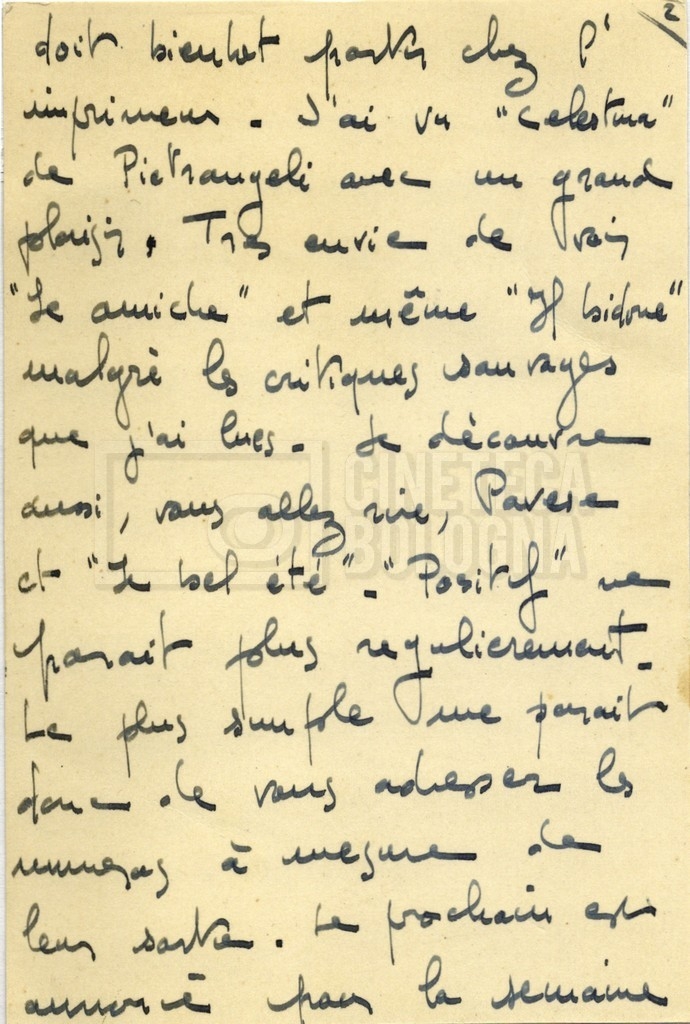 2
doit bientot partir chez l'
imprimeur. J'ai vu "Celestina"
de Pietrangeli avec un grand
plaisir. Tres envie de voir
"Le amiche" et même "Il bidone"
malgré les critiques sauvages
que j'ai lues. Je découvre
aussi, vous allez rire, Pavese
et "Le bel été". "Positif" ne
parait plus regulierement.
Le plus simple me parait
donc de vous adresser les
numeros à mesure de
leur sortie. Le prochain est
annoncé pour la semaine
CINETECA
BOLOGNA